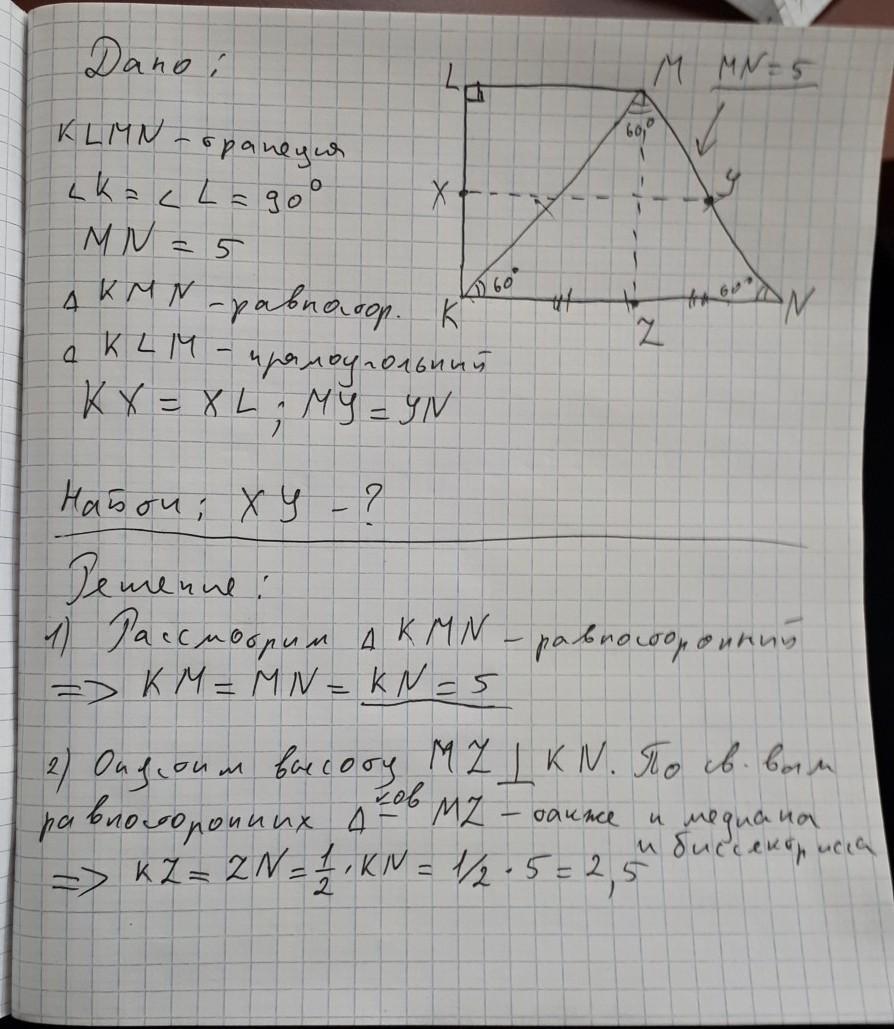 Дано:
KLMN - трапеция
∠K = ∠L = 90°
MN = 5
Δ KMN - равностор.
Δ KLM - прямоугольный
KX = XL; MY = YN
L
M
MN = 5
60°
X
Y
60°
60°
K
Z
N
Найти: XY - ?
Решение:
1) Рассмотрим Δ KMN - равносторонний
=> KM = MN = KN = 5
2) Опустим высоту MZ ⊥ KN. По св. выс
равносторонних Δ-ков MZ - также и медиана
и биссектрисса
=> KZ = ZN = 1/2 · KN = 1/2 · 5 = 2,5